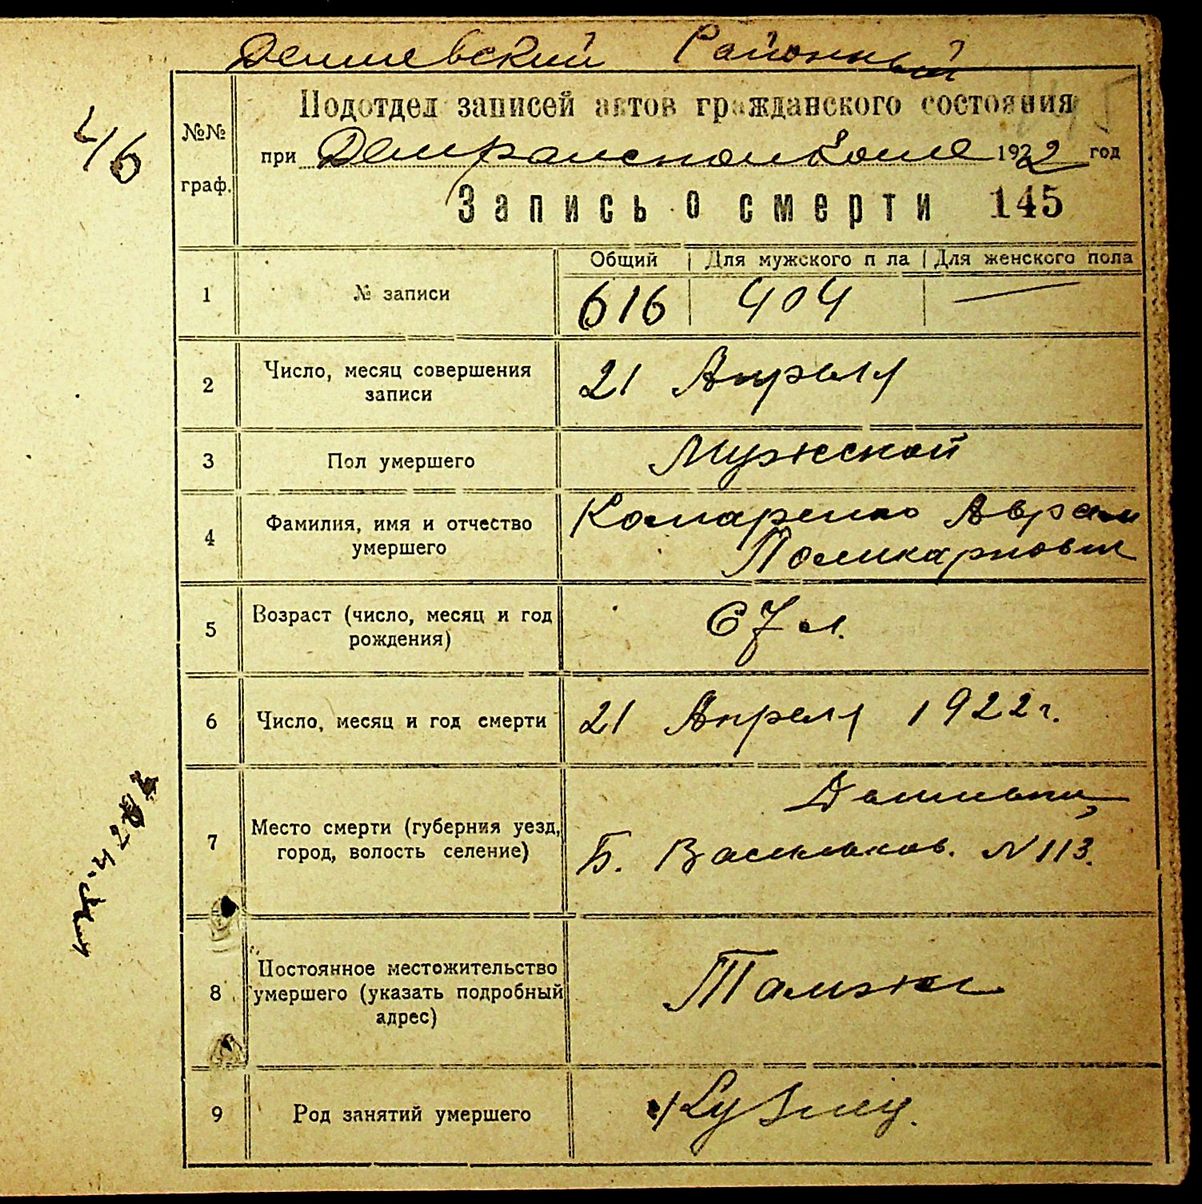 Демиевский Районный
Подотдел записей актов гражданского состояния
при 1922 год
4/6
№№
граф.
Запись о смерти 145
Общий Для мужского п ла Для женского пола
1 № записи 616 404 —
2 Число, месяц совершения
записи
21 Апреля
3 Пол умершего Мужской
4 Фамилия, имя и отчество
умершего
Комаренко Аврам
Поликарпович
5 Возраст (число, месяц и год
рождения)
67 л.
6 Число, месяц и год смерти 21 Апреля 1922 г.
7 Место смерти (губерния уезд,
город, волость селение)
Б. Васильков. N 113.
8 Постоянное местожительство
умершего (указать подробный
адрес)
Тамже
9 Род занятий умершего Кузнец.